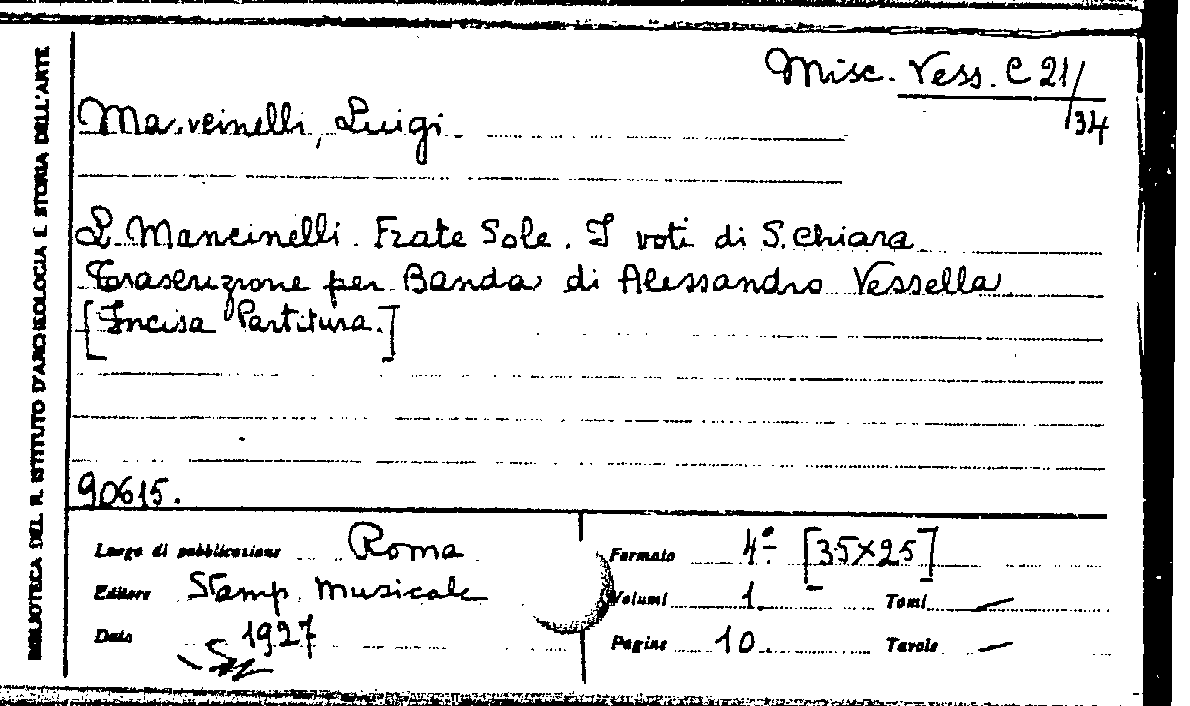 BIBLIOTECA DEL R. ISTITUTO D'ARCHEOLOGIA E STORIA DELL'ARTE
Misc. Vess. C 21/34
Mancinelli, Luigi
L. Mancinelli. Frate Sole. I voti di S. Chiara
Trascrizione per Banda di Alessandro Vessella
[Incisa Partitura.]
90615.
Luogo di pubblicazione Roma
Editore Stamp. Musicale
Data 1927
Formato 4º [35×25]
Volumi 1. Tomi —
Pagine 10. Tavole —